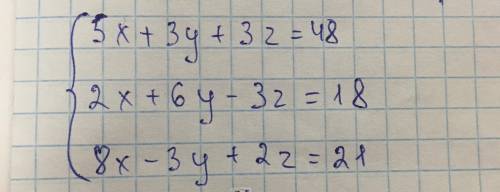 5x + 3y + 3z = 48
2x + 6y - 3z = 18
8x - 3y + 2z = 21